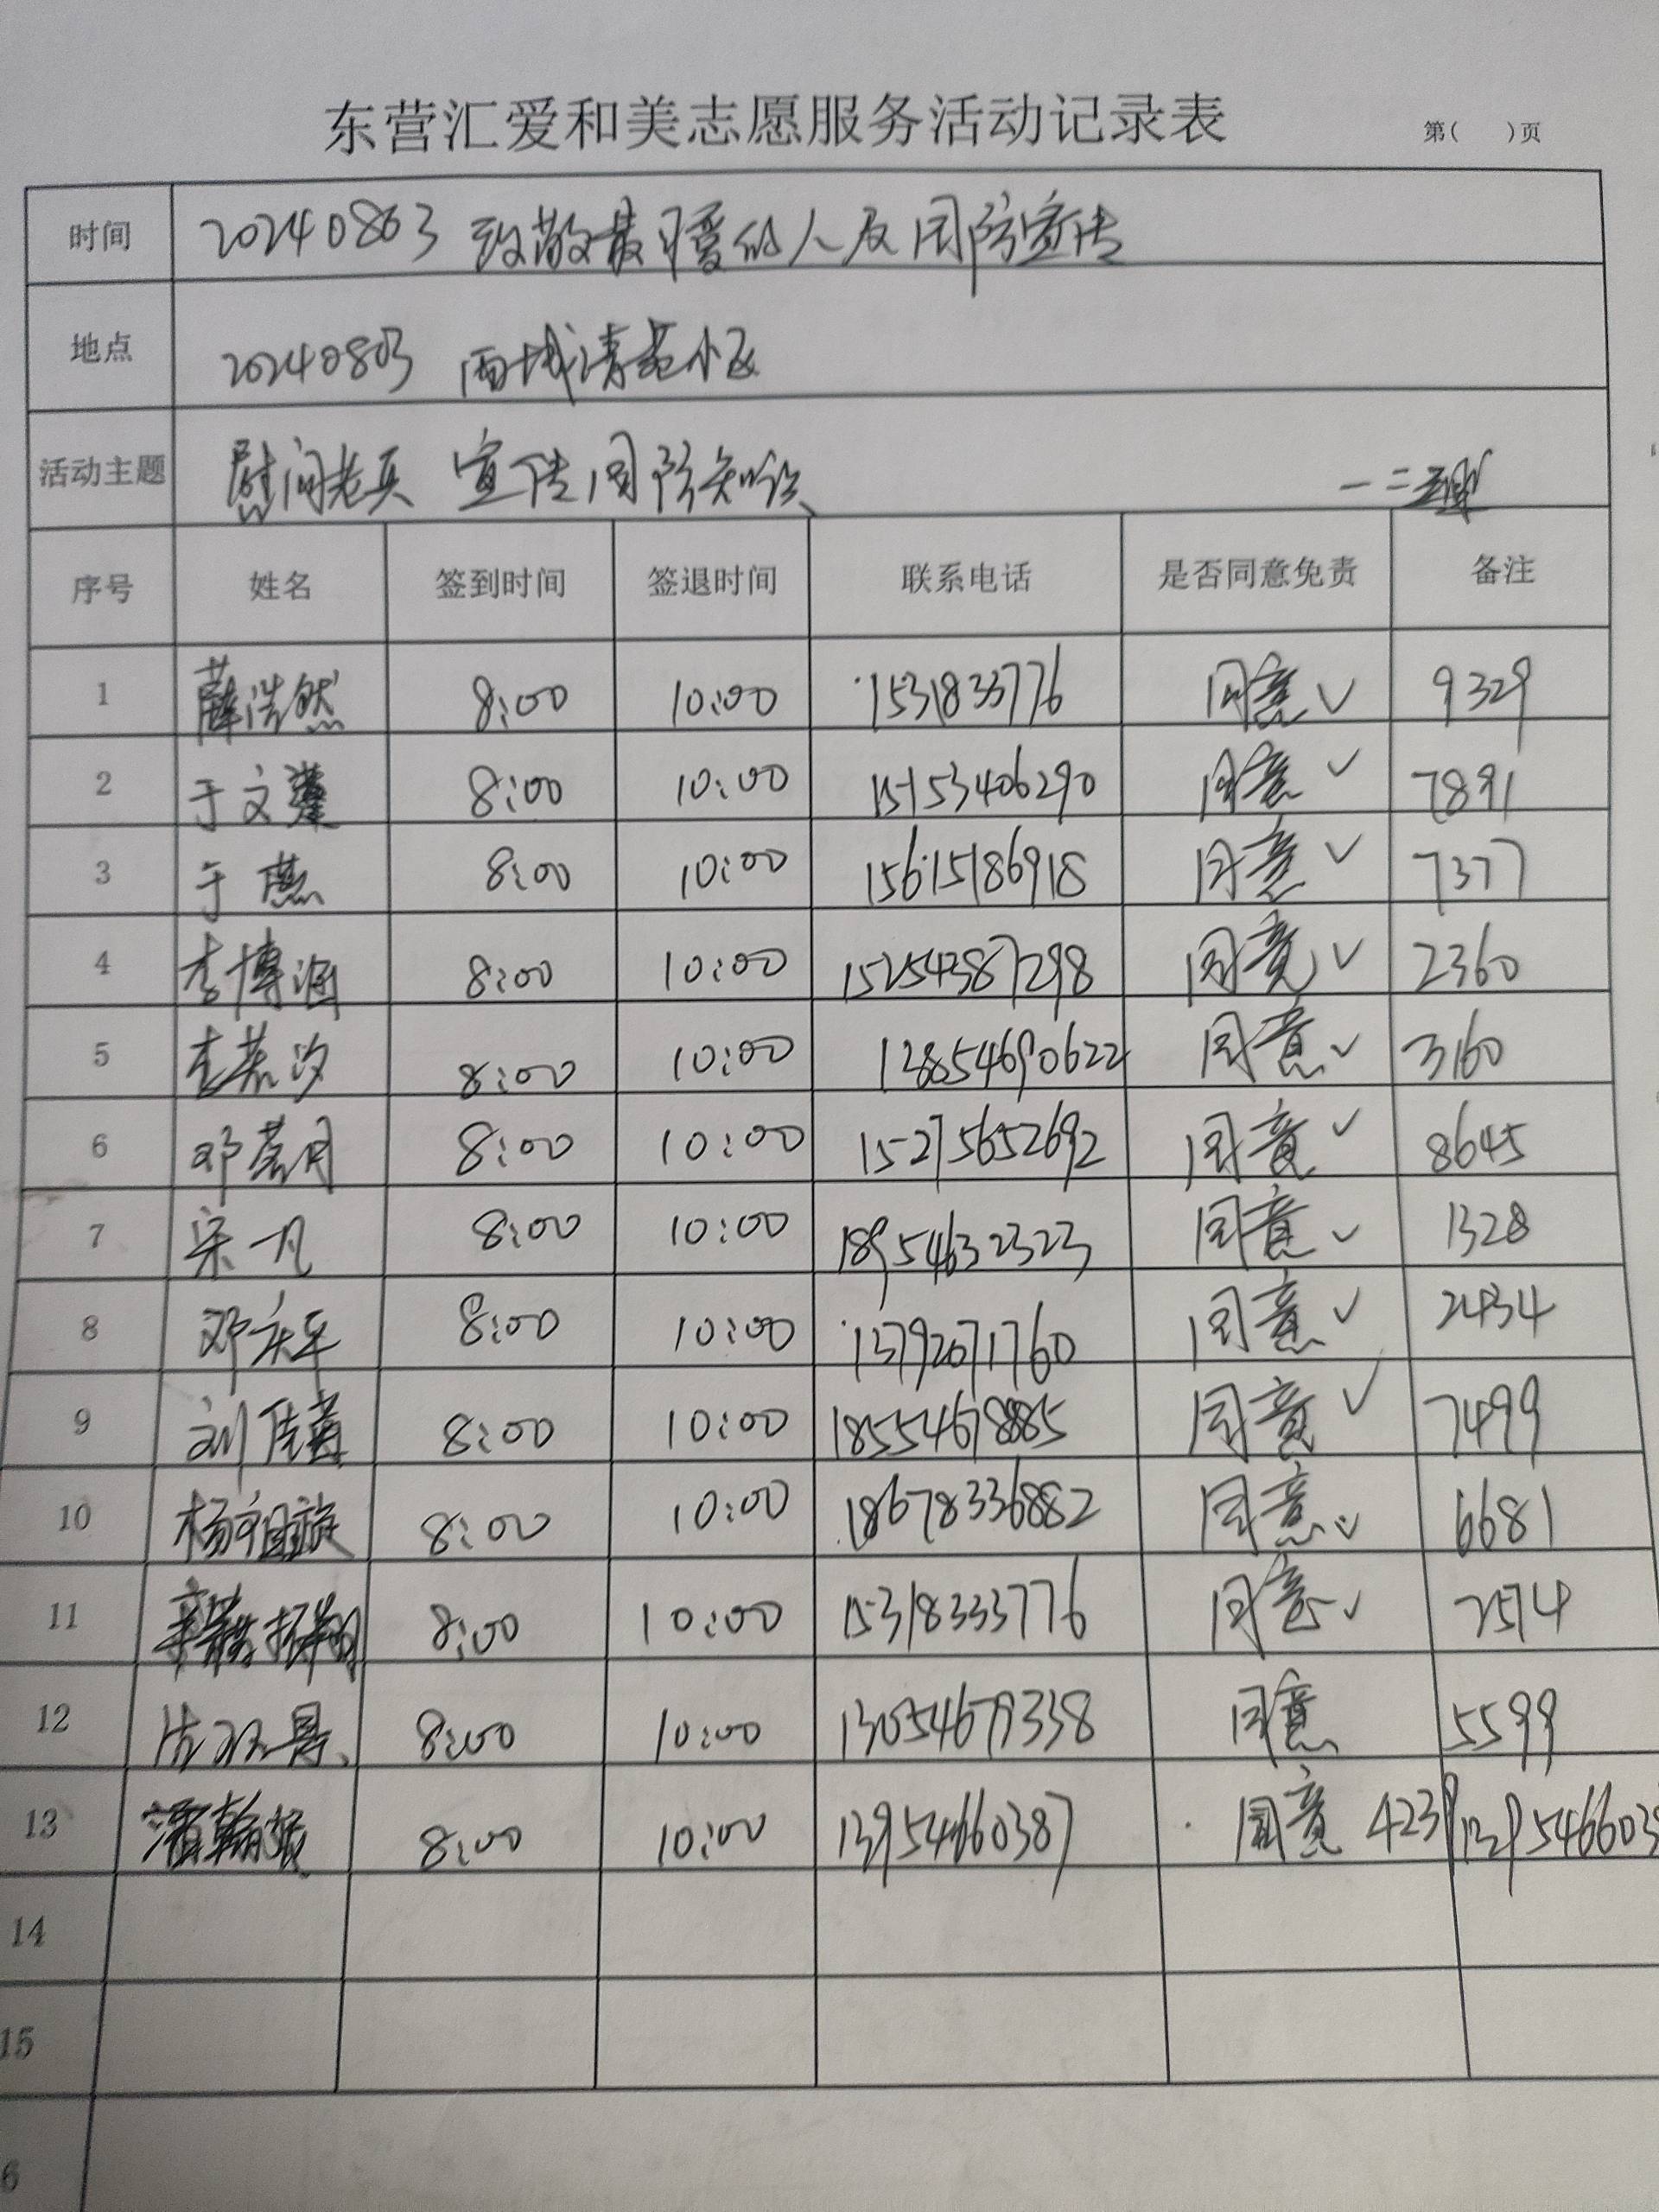 东营汇爱和美志愿服务活动记录表 第( )页
时间 20240803 致敬最可爱的人及国防宣传
地点 20240803 西城清苑小区
活动主题 慰问老兵 宣传国防知识 一二
序号 姓名 签到时间 签退时间 联系电话 是否同意免责 备注
1 薛浩然 8:00 10:00 1531833776 同意✓ 9329
2 于文 8:00 10:00 15153406290 同意✓ 7891
3 于燕 8:00 10:00 15615186918 同意✓ 7377
4 李博涵 8:00 10:00 15254387298 同意✓ 2360
5 李慕汐 8:00 10:00 13854690622 同意✓ 3160
6 邓月 8:00 10:00 15275652692 同意✓ 8645
7 宋凡 8:00 10:00 18954632323 同意✓ 1328
8 邓庆军 8:00 10:00 13792071760 同意✓ 2434
9 刘佳 8:00 10:00 18554678885 同意✓ 7499
10 杨祖旋 8:00 10:00 18678336882 同意✓ 6681
11 8:00 10:00 15318333776 同意✓ 2574
12 8:00 10:00 13054679338 同意 5599
13 8:00 10:00 13954660387 同意 4239 139546603
14
15
6